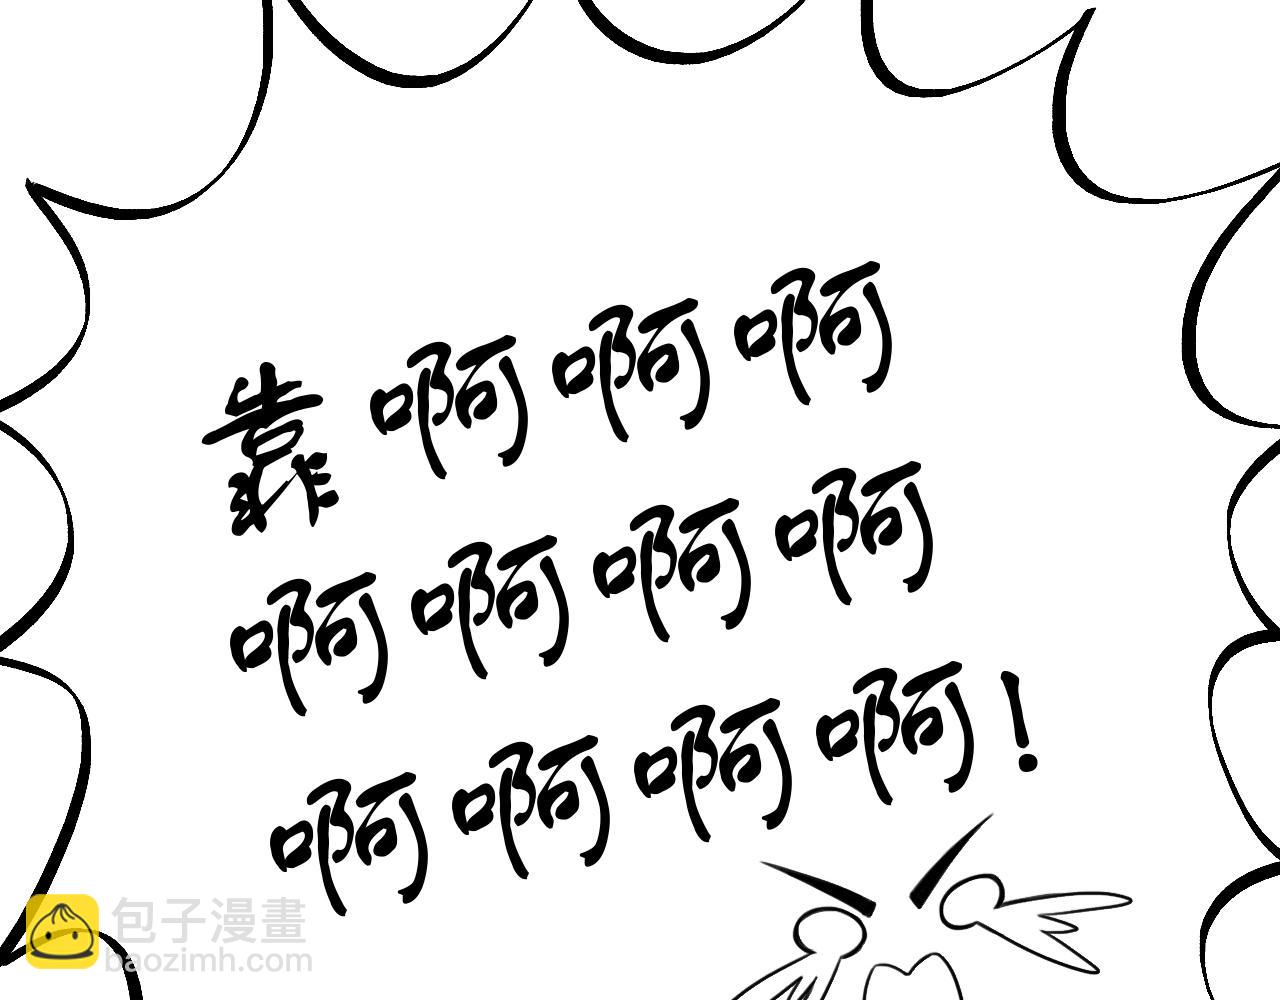 靠啊啊啊
啊啊啊啊
啊啊啊啊！
包子漫畫
baozimh.com